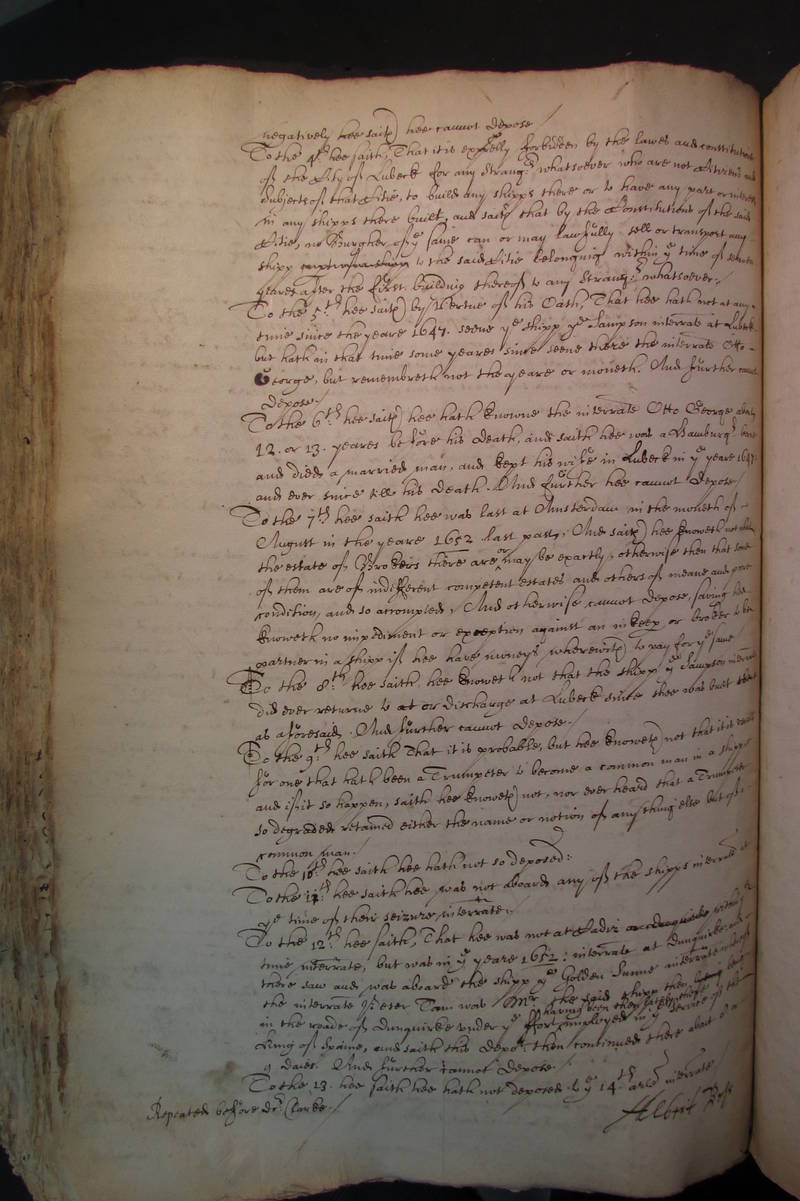 negatively hee saith hee cannot depose /
To the 4th hee saith, That it is expressly forbidden by the lawes and constitutions
of the Citty of Lubeck for any strangr whatsoever who are not Citizens and
subjects of that Citie, to build any shipps there or to have any part or interest
in any shipps there built, and saith that by the Constitutions of the said
Citie, no Burgher of ye same can or may lawfully sell or transport any
shipp to the said Citie belonging within ye time of
yeares after the first building thereof to any strangr whatsoever.
To the 5th hee saith by Vertue of his Oath, That hee hath not at any
time since the yeare 1647. seene ye shipp ye Sampson interrate at Lubeck
but hath in that time some yeares since seene there the interrate Otto
George, but remembreth not the yeare or moneth. And further cannot
depose.
To the 6th hee saith hee hath knowne the interrate Otto George about
12. or 13. yeares before his death, and saith hee was a Hamburgr borne
and died a married man, and kept his wife in Lubeck in ye yeare 1647
and ever since till his death. And further hee cannot depose /
To the 7th hee saith hee was last at Amsterdam in the moneth of
August in the yeare 1652 last past, And saith hee knoweth not
the estate of Brokers there are or may be exactly, otherwise then that some
of them are of indifferent competent estates and others of meane and poore
condition, and so accompted, And otherwise cannot depose, saving hee
knoweth no impediment or exception against an inkeepr or broker to be
partner in a shipp if hee have moneys wherewith to pay for ye same
To the 8th hee saith hee knoweth not that the shipp ye Sampson interrate
did ever returne to at or discharge at Lubeck since shee was built
as aforesaid. And further cannot depose.
To the 9th hee saith That it is probable, but hee knoweth not that it is
for one that hath been a Trumpeter to become a common man in a shipp
and if it so happen, saith hee knoweth not, nor ever heard that a Trumpeter
so degraded retained either the name or notion of any thing else but of a
common man.
To the 10th hee saith hee hath not so deposed:
To the 11th hee saith hee was not aboard any of the shipps interrate at
ye time of their seizure interrate.
To the 12th hee saith, That hee was not at Cadiz
time interrate, but was in ye yeare 1652: interrate at Dunquirke, and
there saw and was aboard the shipp ye Golden Sunne interrate
the interrate Peter Tam was Mr the said shipp then
having been then lately
in the roade of Dunquirke under ye Fort employed in ye service of the
King of Spaine, and saith this depot then continued there about 8 or
9 daies. And further cannot depose
To the 13. hee saith hee hath not deposed to ye 14th arle interrate
Repeated before Dr. Clarke.
Albert